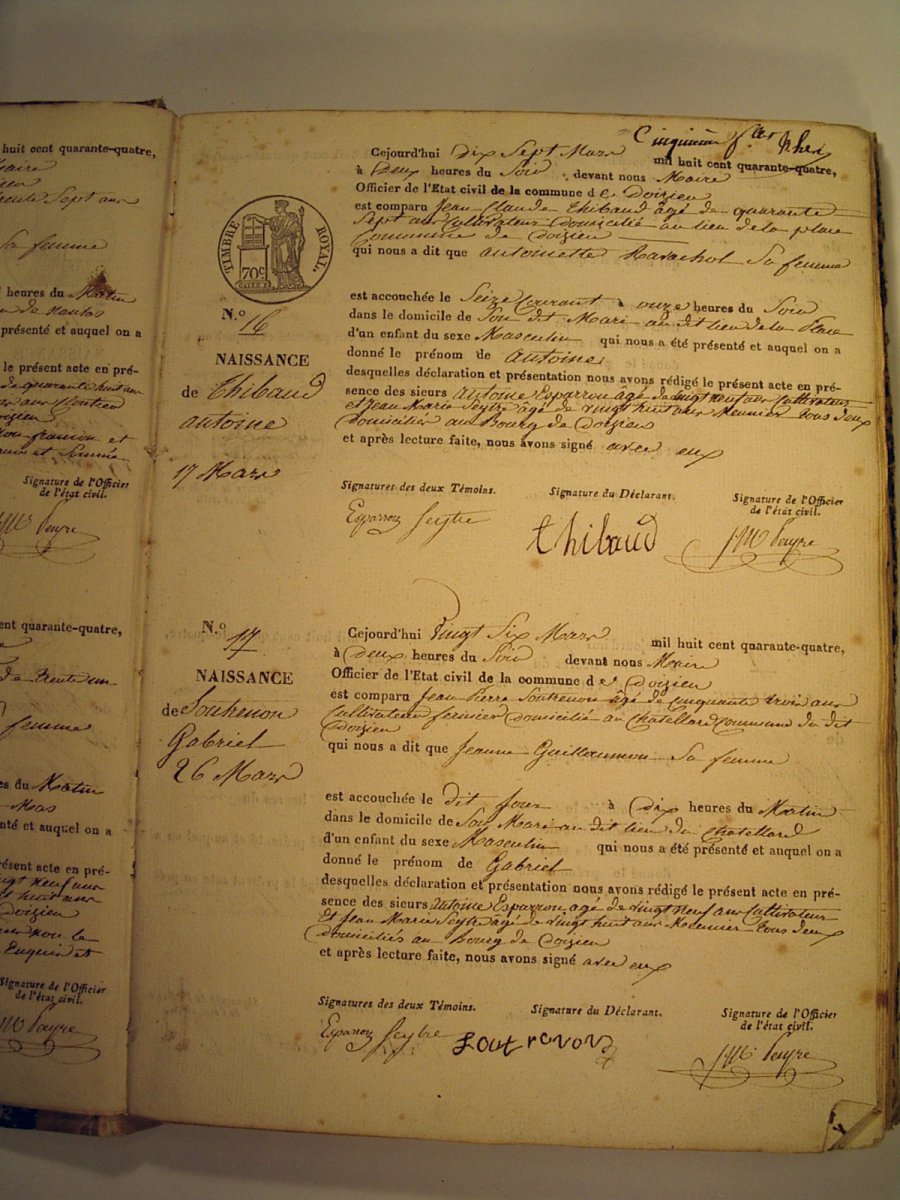 huit cent quarante-quatre,
Maire
trente Sept ans
Sa femme
heures du Matin
présenté et auquel on a
le présent acte en pré-
de quarante huit ans
Signature de l'Officier
de l'état civil.
JM Payre
cent quarante-quatre,
de trente un
femme
es du Matin
nté et auquel on a
résent acte en pré-
vingt neuf ans
et huit ans
Doizieu
Signature de l'Officier
de l'état civil.
JM Payre
Cinquième
Cejourd'hui Dix Sept Mars mil huit cent quarante-quatre,
à Deux heures du Soir, devant nous Maire
Officier de l'Etat civil de la commune de Doizieu
est comparu Jean Claude Thibaud âgé de quarante
Sept ans Cultivateur Domicilié au lieu de la place
Commune de Doizieu
qui nous a dit que antoinette Ravachol Sa femme
TIMBRE ROYAL.
70c
est accouchée le Seize Courant à onze heures du Soir
dans le domicile de Son dit Mari au dit lieu de la Place
d'un enfant du sexe Masculin qui nous a été présenté et auquel on a
donné le prénom de antoine
desquelles déclaration et présentation nous avons rédigé le présent acte en pré-
sence des sieurs antoine Esparron âgé de vingt neuf ans Cultivateur
et Jean Marie Seytre âgé de vingt huit ans Meunier tous deux
Domiciliés au Bourg de Doizieu
et après lecture faite, nous avons signé avec eux
N.o 16
NAISSANCE
de Thibaud
antoine
17 Mars
Signatures des deux Témoins. Signature du Déclarant. Signature de l'Officier
de l'état civil.
Esparron Seytre thibaud JM Payre
N.o 17
NAISSANCE
de Soutrenon
Gabriel
26 Mars
Cejourd'hui Vingt Six Mars mil huit cent quarante-quatre,
à Deux heures du Soir devant nous Maire
Officier de l'Etat civil de la commune de Doizieu
est comparu Jean Pierre Soutrenon âgé de cinquante trois ans
Cultivateur fermier Domicilié au Chatellard Commune du dit
Doizieu
qui nous a dit que Jeanne Guillaumon Sa femme
est accouchée le dit Jour à Dix heures du Matin
dans le domicile de Son Mari au dit lieu du Chatellard
d'un enfant du sexe Masculin qui nous a été présenté et auquel on a
donné le prénom de Gabriel
desquelles déclaration et présentation nous avons rédigé le présent acte en pré-
sence des sieurs Antoine Esparron agé de vingt neuf ans Cultivateur
Et Jean Marie Seytre âgé de vingt huit ans Meunier tous deux
domiciliés au Bourg de Doizieu
et après lecture faite, nous avons signé avec eux
Signatures des deux Témoins. Signature du Déclarant. Signature de l'Officier
de l'état civil.
Esparron Seytre Soutronon JM Payre